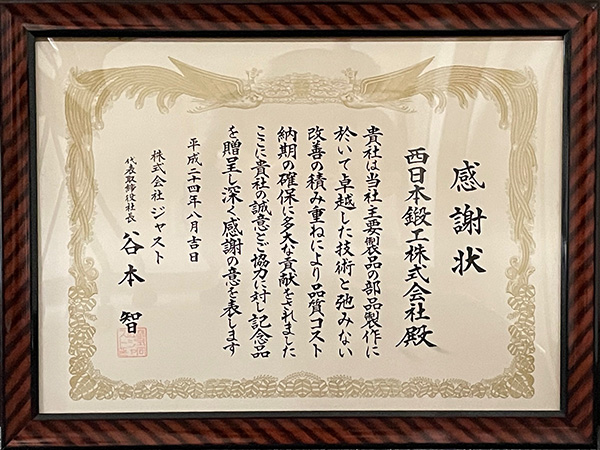 感謝状
西日本鍛工株式会社殿
貴社は当社主要製品の部品製作に
於いて卓越した技術と弛みない
改善の積み重ねにより品質コスト
納期の確保に多大な貢献をされました
ここに貴社の誠意とご協力に対し記念品
を贈呈し深く感謝の意を表します
平成二十四年八月吉日
株式会社ジャスト
代表取締役社長 谷本智